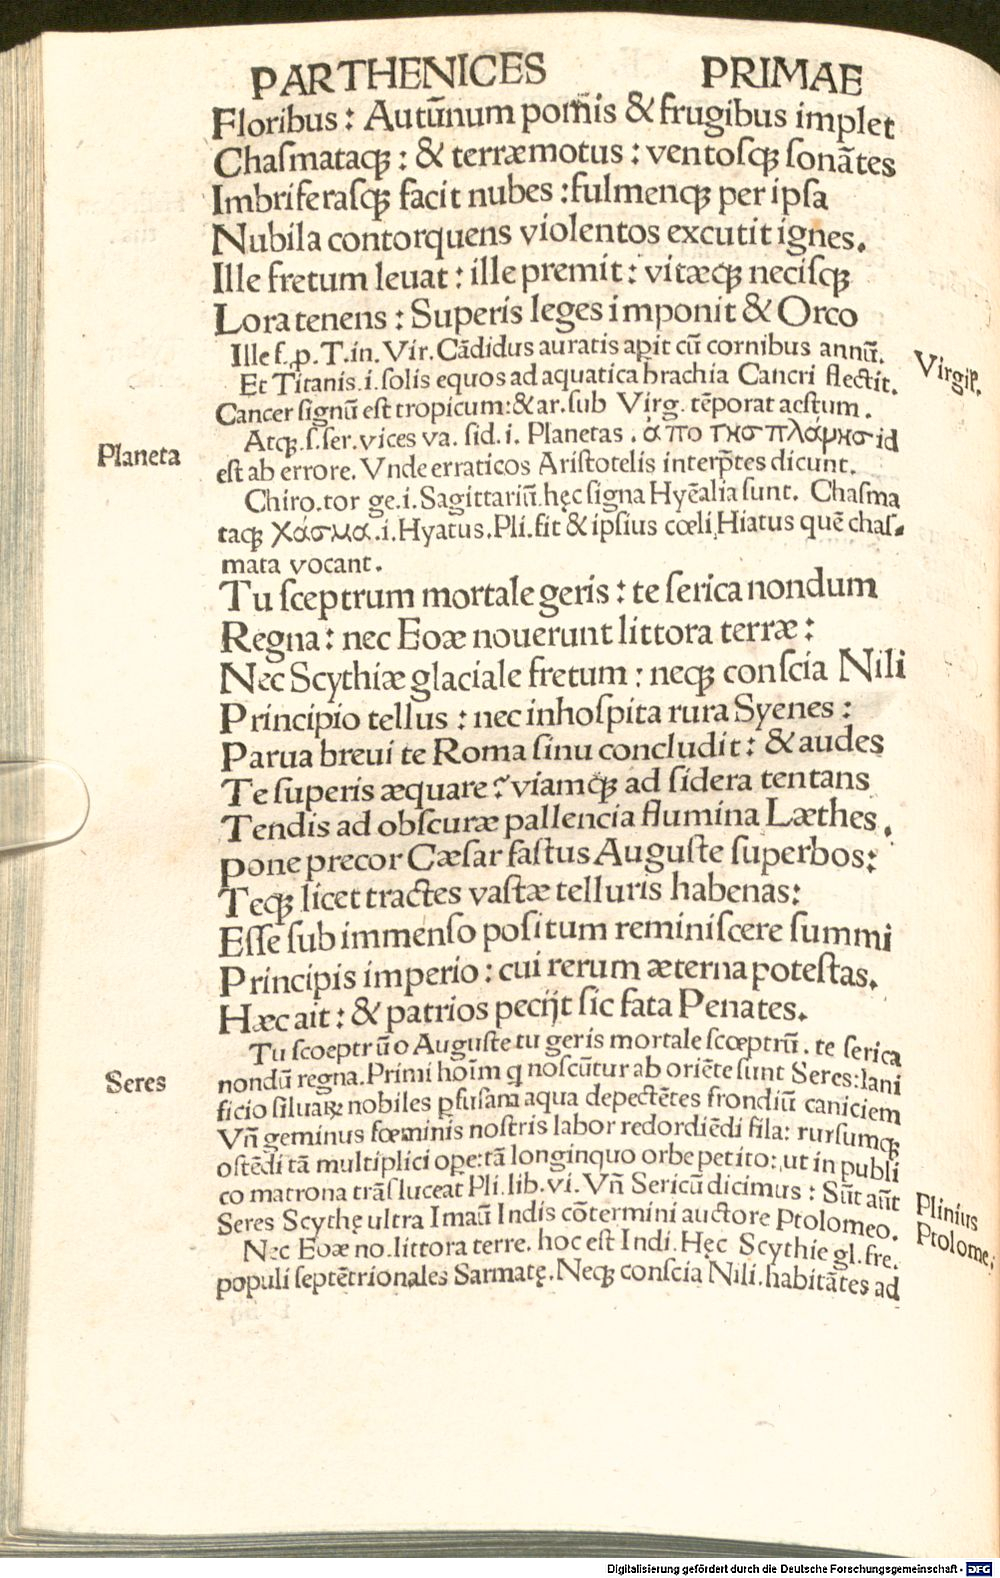 PARTHENICES PRIMAE
Floribus : Autūnum pom̄is & frugibus implet
Chaſmataqꝫ : & terræmotus : ventoſqꝫ ſonātes
Imbriferaſqꝫ facit nubes :fulmenqꝫ per ipſa
Nubila contorquens violentos excutit ignes.
Ille fretum leuat : ille premit : vitæqꝫ neciſqꝫ
Lora tenens : Superis leges imponit & Orco
Ille ſ. ꝓ. T. in. Vir. Cādidus auratis aꝑit cū cornibus annū.
Virgil̄.
Et Titanis.i. ſolis equos ad aquatica brachia Cancri flectit.
Cancer ſignū eſt tropicum:& ar. ſub Virg. tēporat aeſtum.
Atqꝫ. ſ. ſer. vices va. ſid. i. Planetas . ἀπο τησ πλάμησ id
Planeta
eſt ab errore. Vnde erraticos Ariſtotelis interp̄tes dicunt.
Chiro. tor ge. i. Sagittariū. hęc ſigna Hyēalia ſunt. Chaſma
taqꝫ χάσμα .i. Hyatus. Pli. fit & ipſius cœli Hiatus quē chaſ-
mata vocant.
Tu ſceptrum mortale geris : te ſerica nondum
Regna : nec Eoæ nouerunt littora terræ :
Nec Scythiæ glaciale fretum : neqꝫ conſcia Nili
Principio tellus : nec inhoſpita rura Syenes :
Parua breui te Roma ſinu concludit : & audes
Te ſuperis æquare ? viamqꝫ ad ſidera tentans
Tendis ad obſcuræ pallencia flumina Læthes.
pone precor Cæſar faſtus Auguſte ſuperbos:
Teqꝫ licet tractes vaſtæ telluris habenas:
Eſſe ſub immenſo poſitum reminiſcere ſummi
Principis imperio : cui rerum æterna poteſtas.
Hæc ait : & patrios pecijt ſic fata Penates.
Tu ſcoeptrū o Auguſte tu geris mortale ſcœptrū. te ſerica
nondū regna. Primi hoīm q noſcūtur ab oriēte ſunt Seres: lani
Seres
ficio ſiluaꝝ nobiles ꝑfuſam aqua depectētes frondiū caniciem
Vn̄ geminus fœminis noſtris labor redordiēdi fila: rurſumqꝫ
oſtēdi tā multiplici ope: tā longinquo orbe petito: ut in publi
co matrona trāſluceat Pli. lib. vi. Vn̄ Sericū dicimus : Sūt aūt
Plinius
Seres Scythę ultra Imaū Indis cōtermini auctore Ptolomeo.
Ptolome.
Nec Eoæ no. littora terre. hoc eſt Indi. Hęc Scythie gl. fre.
populi ſeptētrionales Sarmatę. Neqꝫ conſcia Nili. habitātes ad
Digitalisierung gefördert durch die Deutsche Forschungsgemeinschaft - DFG